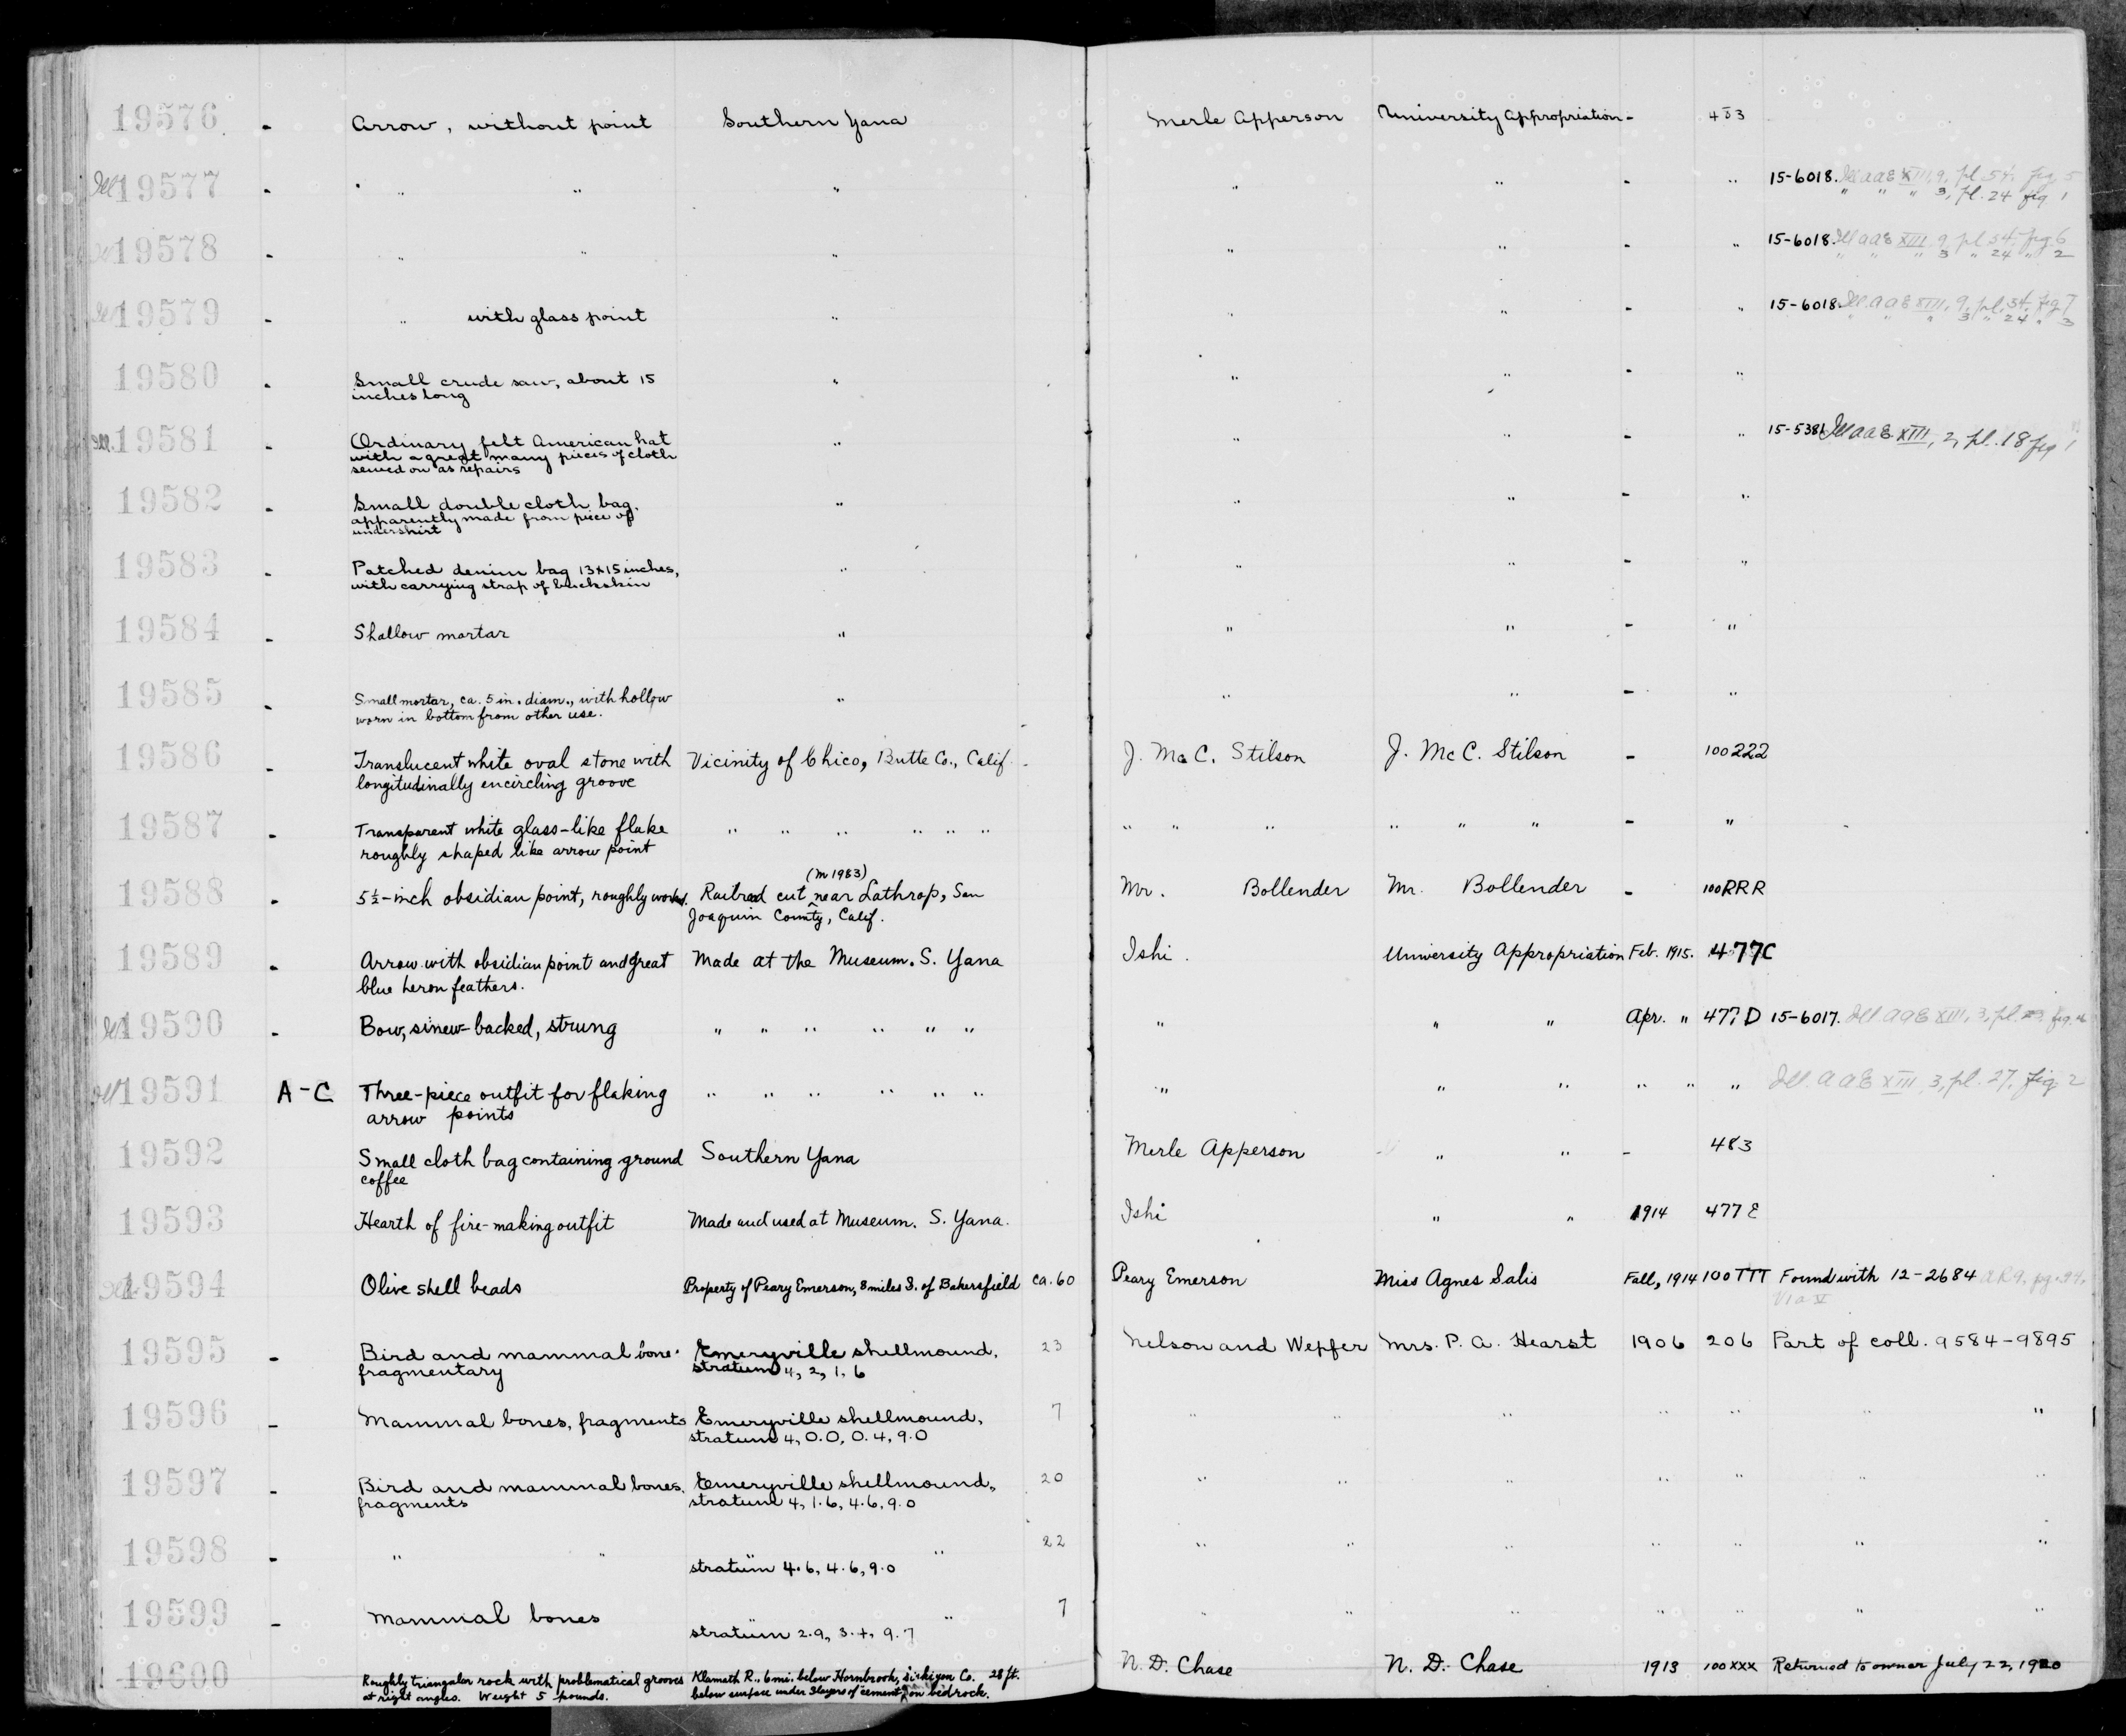 19576 - Arrow, without point Southern Yana Merle Apperson University Appropriation - 483
Ill 19577 - " " " " " " - " 15-6018. Ill AAE XIII, 9, pl. 54, fig. 5
" " " 3, pl. 24 fig 1
19578 - " " " " " - " 15-6018. Ill AAE XIII, 9, pl. 54, fig. 6
" " " 3 " 24 " 2
19579 - " with glass point " " " - " 15-6018. Ill. AAE XIII, 9, pl. 54, fig 7
" " " 3 " 24 " 3
19580 - Small crude saw, about 15 " " " - "
inches long
Ill. 19581 - Ordinary felt American hat " " " - " 15-5381 Ill AAE XIII, 2, pl. 18 fig 1
with a great many pieces of cloth
sewed on as repairs
19582 - Small double cloth bag, " " " - "
apparently made from piece of
undershirt
19583 - Patched denim bag 13x15 inches, " " " - "
with carrying strap of buckskin
19584 - Shallow mortar " " " - "
19585 - Small mortar, ca. 5 in. diam., with hollow " " " - "
worn in bottom from other use.
19586 - Translucent white oval stone with Vicinity of Chico, Butte Co., Calif. - J. McC. Stilson J. McC. Stilson - 100222
longitudinally encircling groove
19587 - Transparent white glass-like flake " " " " " " " " " " " " - "
roughly shaped like arrow point
(m 1983)
19588 - 5½-inch obsidian point, roughly worked. Railroad cut near Lathrop, San Mr. Bollender Mr. Bollender - 100RRR
Joaquin County, Calif.
19589 - Arrow with obsidian point and great Made at the Museum. S. Yana Ishi. University Appropriation Feb. 1915. 477C
blue heron feathers.
Ill 19590 - Bow, sinew-backed, strung " " " " " " " " " Apr. " 477D 15-6017. Ill. AAE XIII, 3, pl. fig.
Ill 19591 A-C Three-piece outfit for flaking " " " " " " " " " " " " Ill. AAE XIII, 3, pl. 27, fig 2
arrow points
19592 Small cloth bag containing ground Southern Yana Merle Apperson " " - 483
coffee
19593 Hearth of fire-making outfit Made and used at Museum. S. Yana. Ishi " " 1914 477E
Ill 19594 Olive shell beads Property of Peary Emerson, 8 miles S. of Bakersfield ca. 60 Peary Emerson Miss Agnes Salis Fall, 1914 100TTT Found with 12-2684
19595 - Bird and mammal bone. Emeryville shellmound, 23 Nelson and Wepfer Mrs. P. A. Hearst 1906 206 Part of coll. 9584-9895
fragmentary stratum 4, 2, 1.6
19596 - Mammal bones, fragments Emeryville shellmound, 7 " " " " " " "
stratum 4, 0.0, 0.4, 9.0
19597 - Bird and mammal bones. Emeryville shellmound, 20 " " " " " " "
fragments stratum 4, 1.6, 4.6, 9.0
19598 - " " " " 22 " " " " " " "
stratum 4.6, 4.6, 9.0
19599 - Mammal bones " " 7 " " " " " " "
stratum 2.9, 3.+, 9.7
19600 Roughly triangular rock with problematical grooves Klamath R., 6 mi. below Hornbrook, Siskiyou Co. 28 ft. N. D. Chase N. D. Chase 1913 100XXX Returned to owner July 22, 1920
at right angles. Weight 5 pounds. below surface under 3 layers of cement, on bedrock.